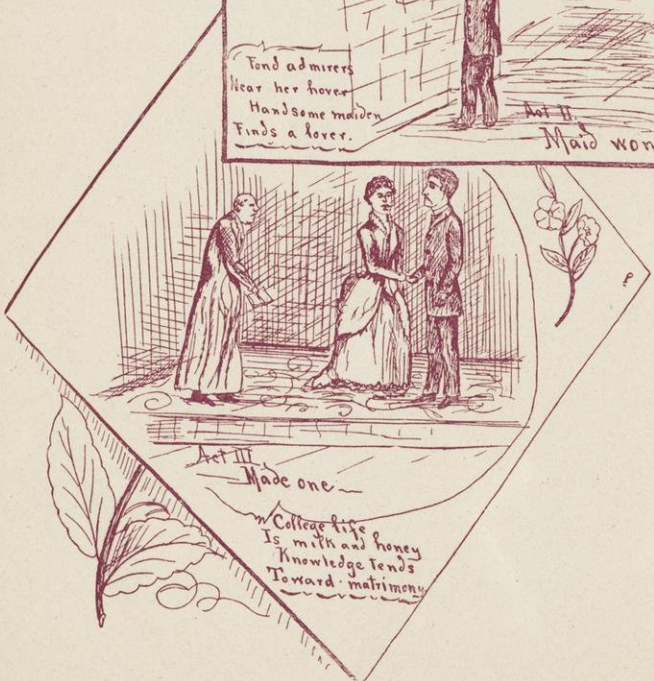 Fond admirers
Near her hover
Handsome maiden
Finds a lover.
Act II.
Maid won
Act III.
Made one
College life
Is milk and honey
Knowledge tends
Toward matrimony